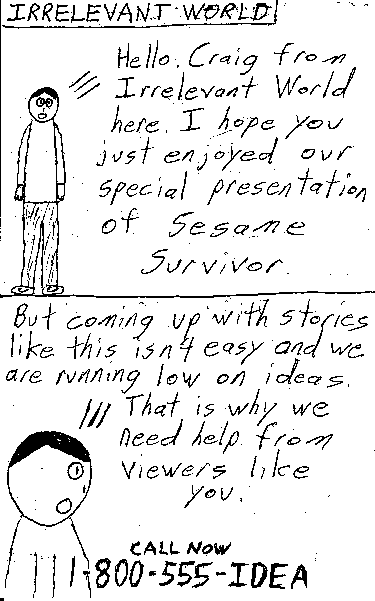 IRRELEVANT WORLD
Hello. Craig from
Irrelevant World
here. I hope you
just enjoyed our
special presentation
of Sesame
Survivor.
But coming up with stories
like this isn't easy and we
are running low on ideas.
That is why we
need help from
viewers like
you.
CALL NOW
1-800-555-IDEA